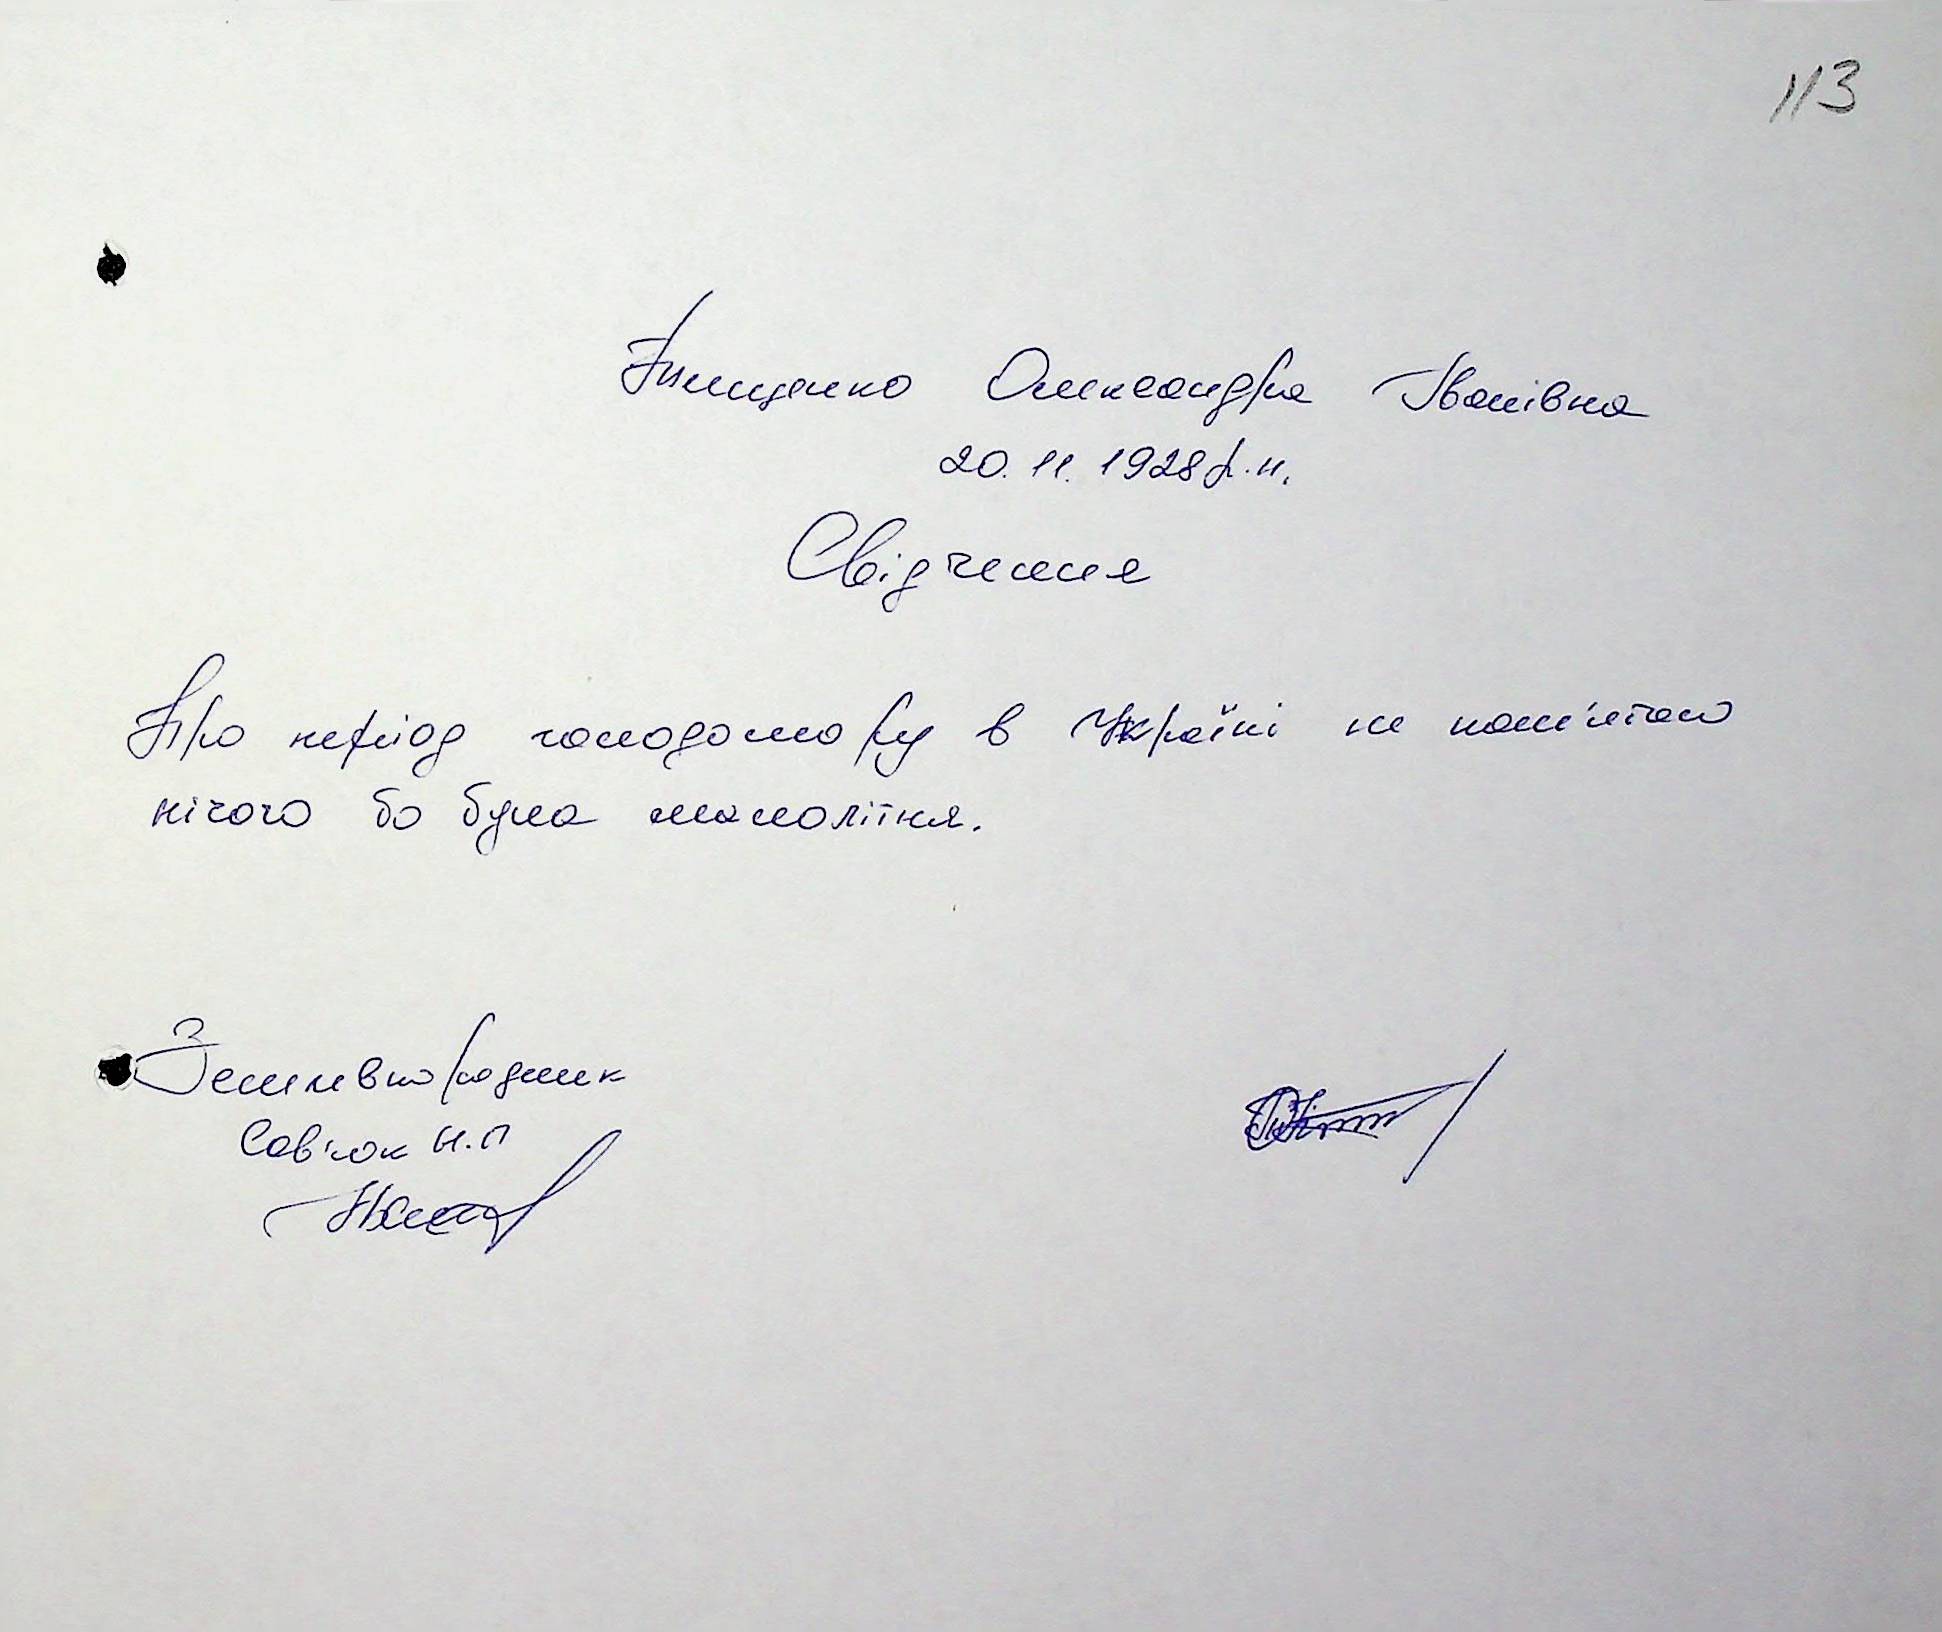 113
Олександра Іванівна
20.11.1928 р.н.
Свідчення
Про період голодомору в Україні не пам'ятаю
нічого бо була малолітня.
Землевпорядник
Сав'юк Н.П